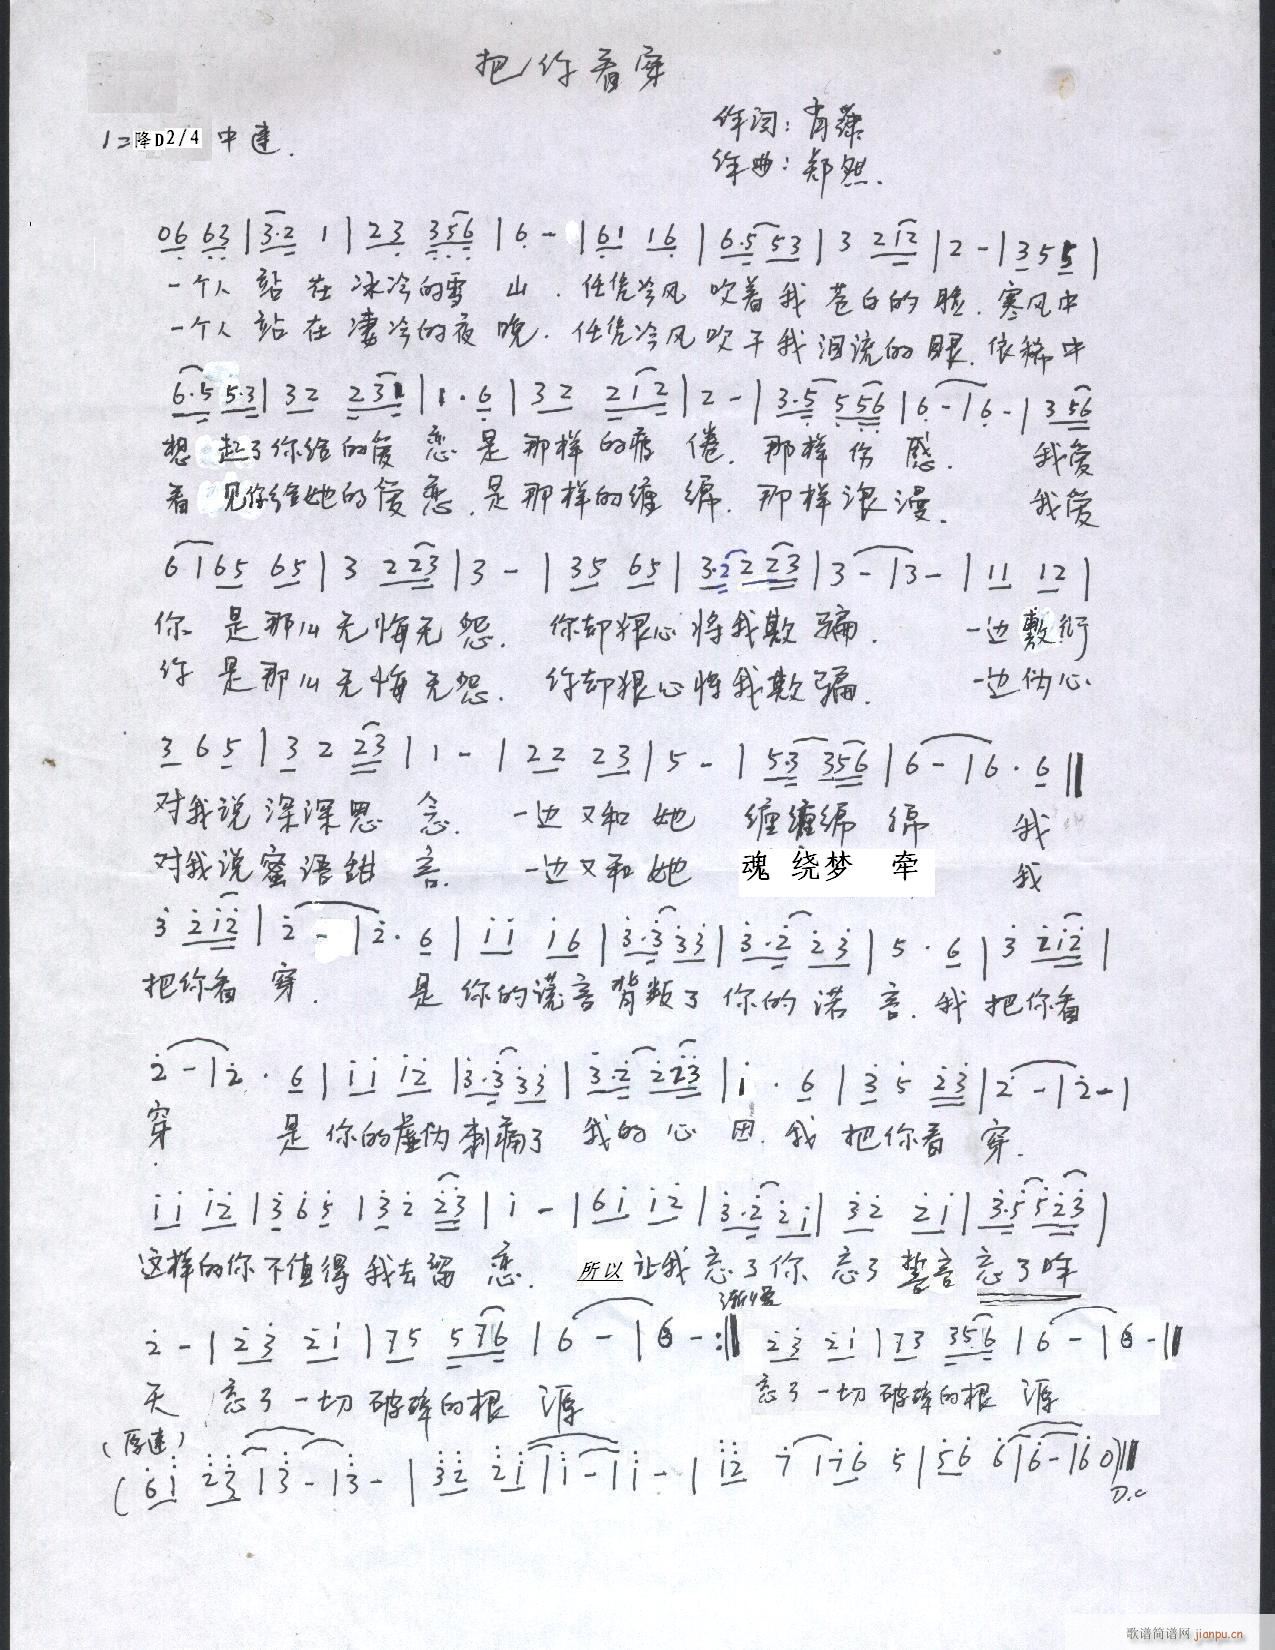 把你看穿
1=降D2/4 中速.
作词:肖
作曲:郑然.
06 63|3·2 1|23 356|6 -|61 16|6·5 53|3 212|2 -|3 5 5|
一个人 站 在 冰冷的雪 山. 任凭冷风 吹着我 苍白的脸. 寒风中
一个人 站 在 凄冷的夜 晚. 任凭冷风吹干我 泪流的眼. 依稀中
6·5 5·3|32 231|1·6|32 212|2 -|3·5 556|6 -|6 -|3 56
想 起了你给的爱 恋 是 那样 的疲 倦. 那样 伤 感. 我爱
看 见你给她的爱 恋. 是 那样的缠 绵. 那样 浪 漫. 我爱
6|65 65|3 223|3 -|35 65|3·22 23|3 -|3 -|11 12|
你 是 那么无悔无 怨. 你却狠心将我欺 骗. 一边 敷衍
你 是 那么无悔无 怨. 你却狠心将我欺骗. 一边伪心
3 6 5|3 2 23|1 -|22 23|5 -|5·3 356|6 -|6·6‖
对我说深深思 念. 一边又和 她 缠缠绵 绵 我
对我说蜜语甜 言. 一边又和她 魂 绕梦 牵 我
3 212|2 -|2·6|11 16|3·3 33|3·2 23|5·6|3 212|
把你看 穿. 是 你的谎言背叛了 你的 诺 言. 我 把你看
2 -|2·6|11 12|3·3 33|3·2 223|1·6|3 5 23|2 -|2 -|
穿 是 你的虚伪刺痛了 我的 心 田. 我 把你看 穿.
11 12|3 6 5|3 2 23|1 -|61 12|3·2 21|32 21|3·5 523|
这样的你不值得 我去留 恋. 所以 让我 忘了你 忘了 誓言 忘了昨
渐慢
2 -|23 21|75 576|6 -|6 -:‖ 23 21|73 356|6 -|6 -‖
天 忘了一切破碎的根 源 忘了一切 破碎的根 源
(原速)
(61 23|3 -|3 -|32 21|1 -|1 -|12 7|76 5|56 6|6 -|60)‖
D.C
歌谱简谱网 jianpu.cn